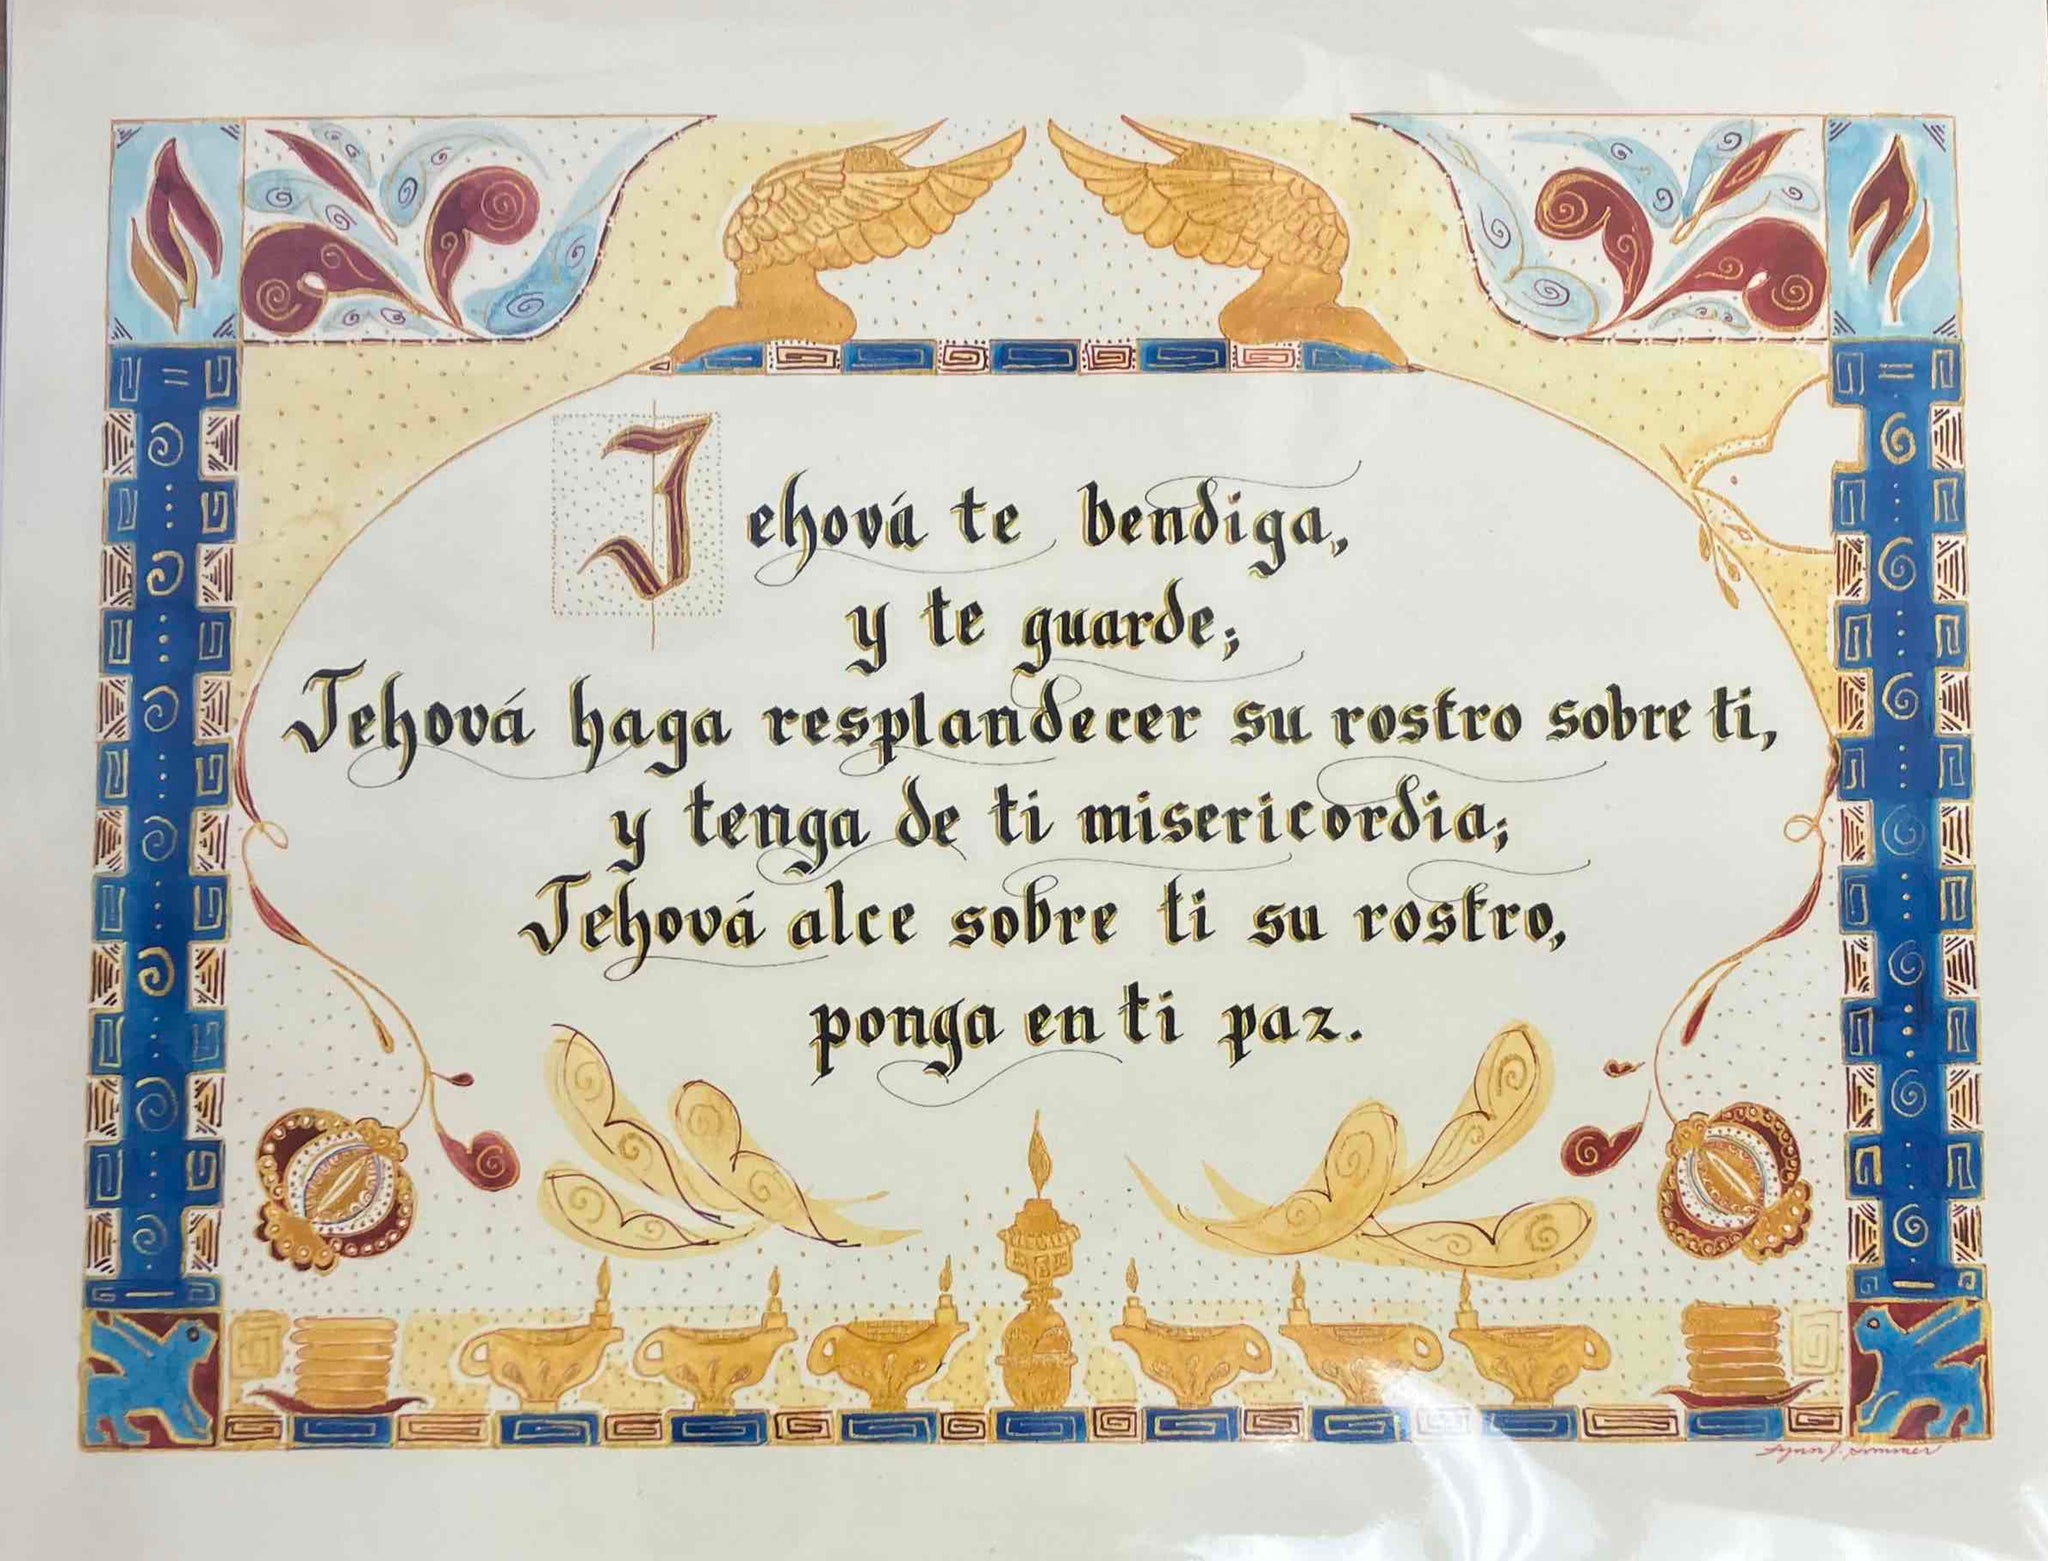 Jehová te bendiga,
y te guarde;
Jehová haga resplandecer su rostro sobre ti,
y tenga de ti misericordia;
Jehová alce sobre ti su rostro,
ponga en ti paz.
Lynn J. Sommer